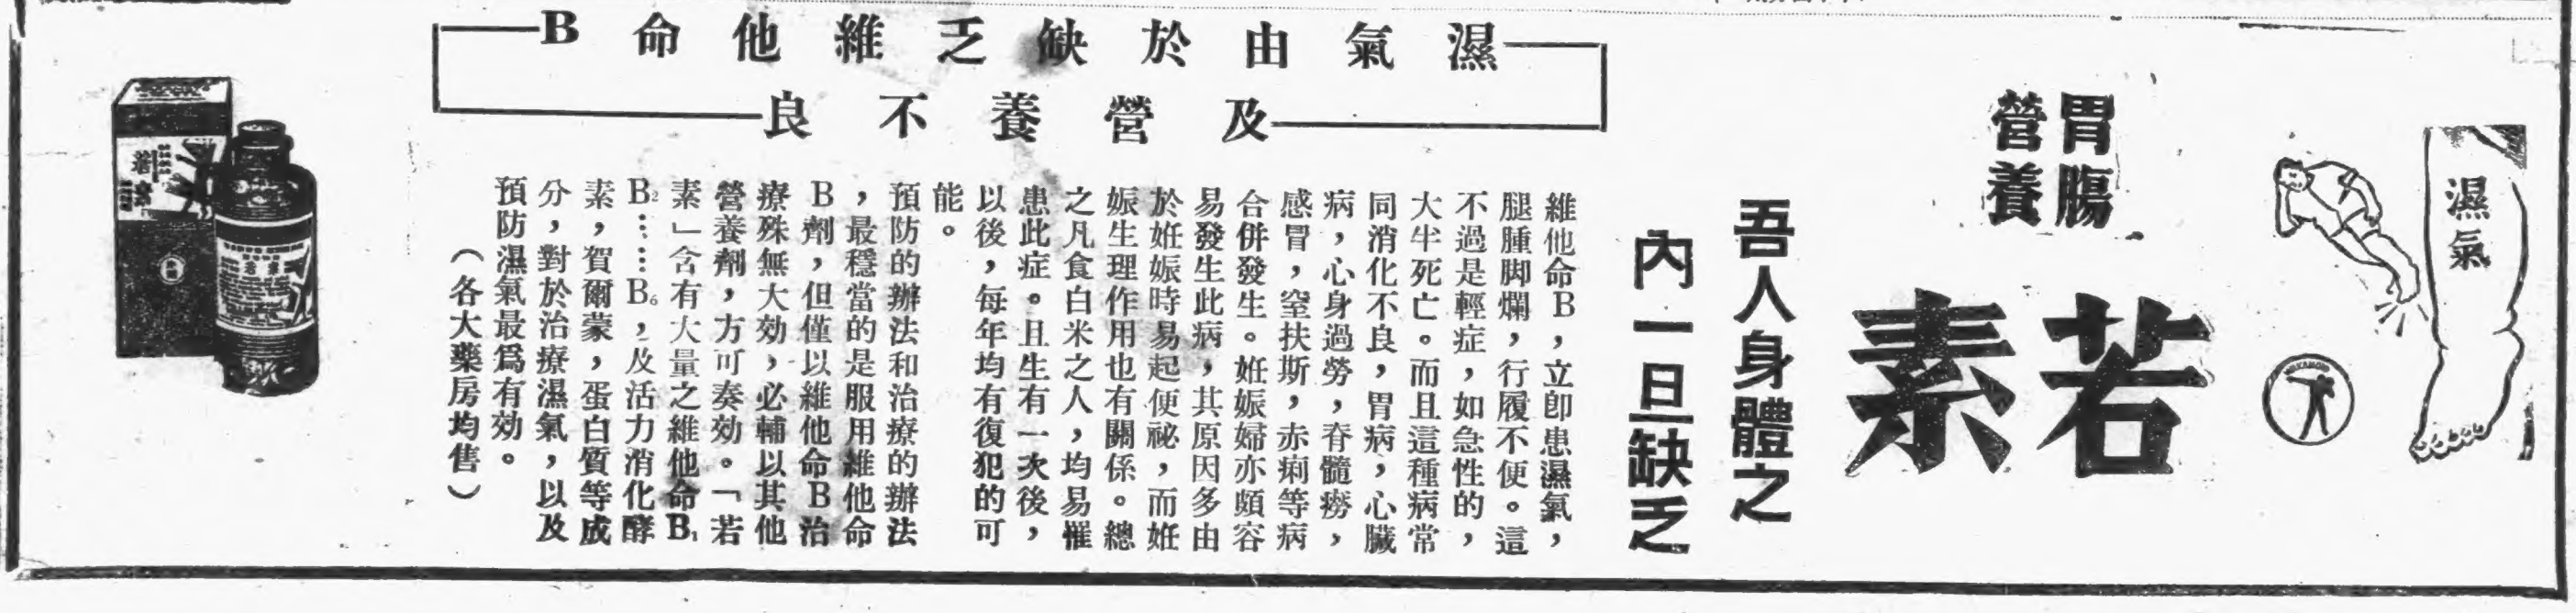 濕氣
WAKAMOTO
胃腸
營養
若素
吾人身體之
內一旦缺乏
濕氣由於缺乏維他命B
及營養不良
維他命B，立卽患濕氣，
腿腫脚爛，行履不便。這
不過是輕症，如急性的，
大半死亡。而且這種病常
同消化不良，胃病，心臟
病，心身過勞，脊髓癆，
感冒，窒扶斯，赤痢等病
合併發生。姙娠婦亦頗容
易發生此病，其原因多由
於姙娠時易起便祕，而姙
娠生理作用也有關係。總
之凡食白米之人，均易罹
患此症。且生有一次後，
以後，每年均有復犯的可
能。
預防的辦法和治療的辦法
，最穩當的是服用維他命
B劑，但僅以維他命B治
療殊無大効，必輔以其他
營養劑，方可奏効。「若
素」含有大量之維他命B₁
B₂……B₆，及活力消化酵
素，賀爾蒙，蛋白質等成
分，對於治療濕氣，以及
預防濕氣最爲有効。
（各大藥房均售）
若素